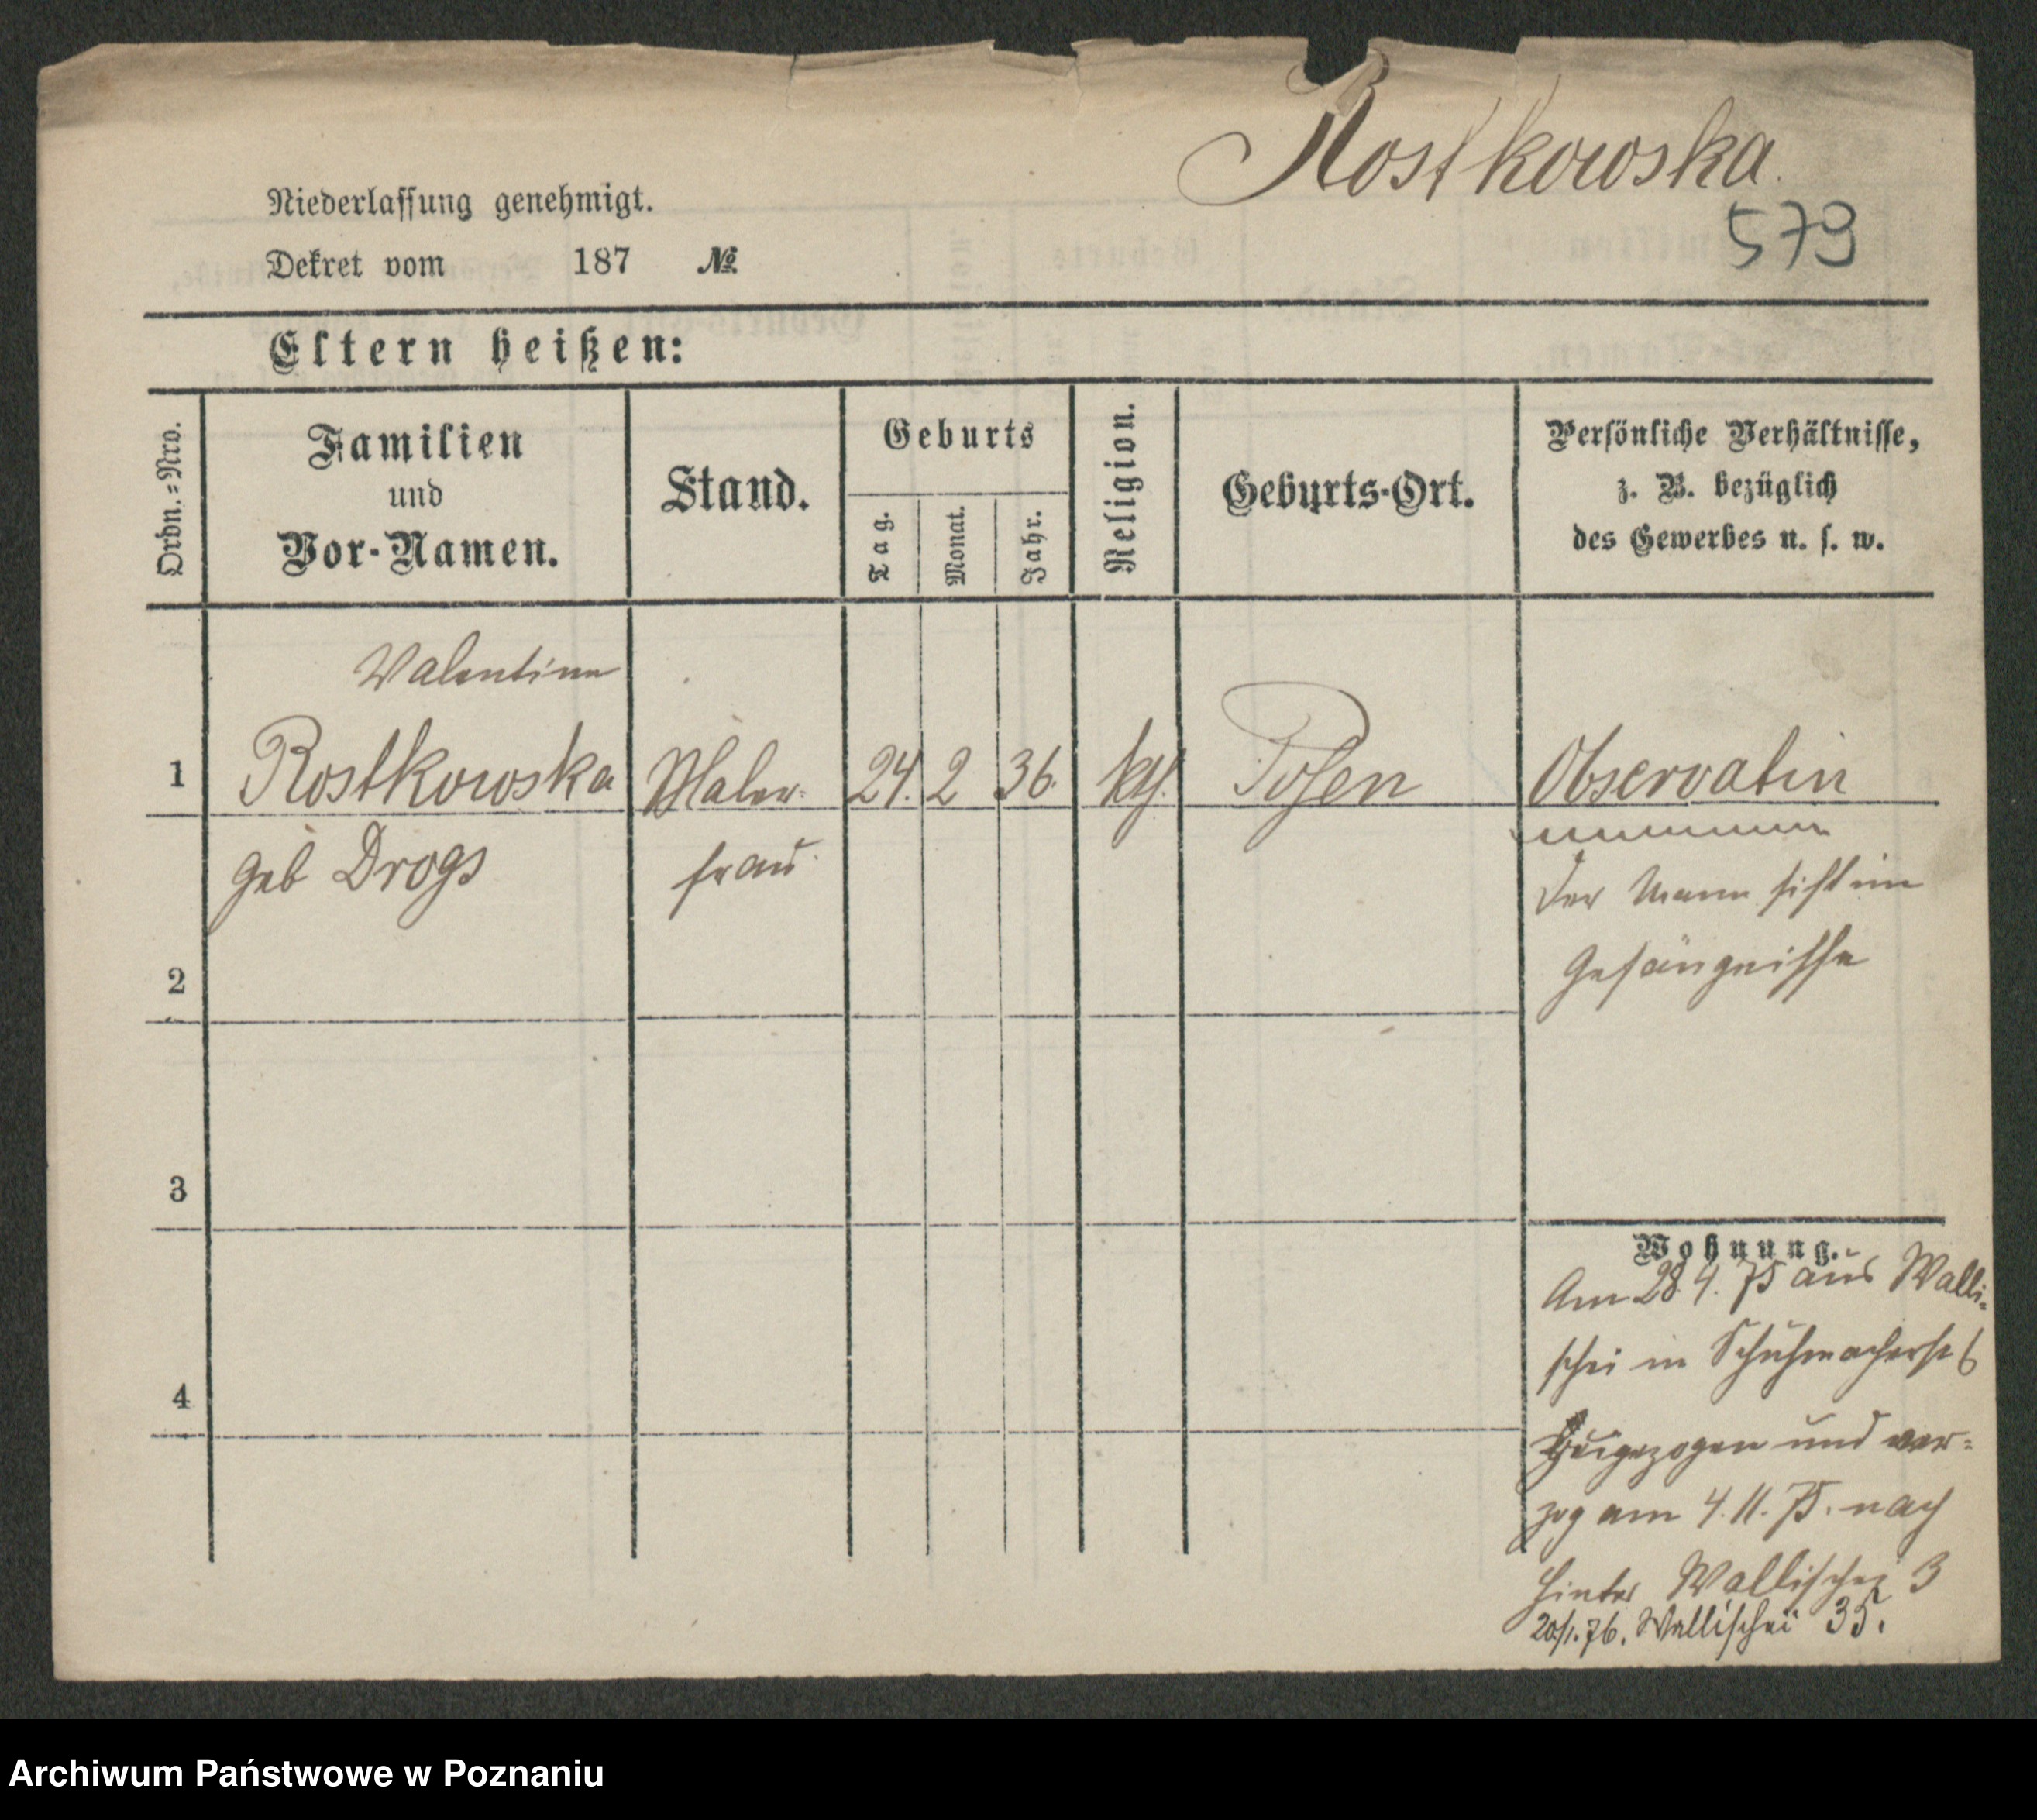 Rostkowska.
579
Niederlassung genehmigt.
Dekret vom 187 №
Eltern heißen:
Ordn.=Nro.
Familien
und
Vor-Namen.
Stand.
Geburts
Tag.
Monat.
Jahr.
Religion.
Geburts-Ort.
Persönliche Verhältnisse,
z. B. bezüglich
des Gewerbes u. s. w.
Valentine
1 Rostkowska Maler- 24. 2 36. kth. Posen Observatin
geb Drogs frau
Der Mann sitzt im
Gefängnisse
2
3
4
Wohnung.
Am 28. 4. 75 aus Walli-
schei in Schuhmacherst 6
zugezogen und ver-
zog am 4. 11. 75. nach
Hinter Wallischei 3
20/1. 76. Wallischei 35.
Archiwum Państwowe w Poznaniu